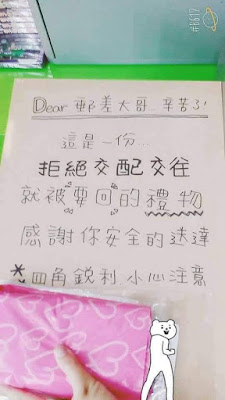 #1617
Dear 郵差大哥 辛苦了!
這是一份...
拒絕交配交往
就被要回的禮物
感謝你安全的送達
*四角銳利.小心注意